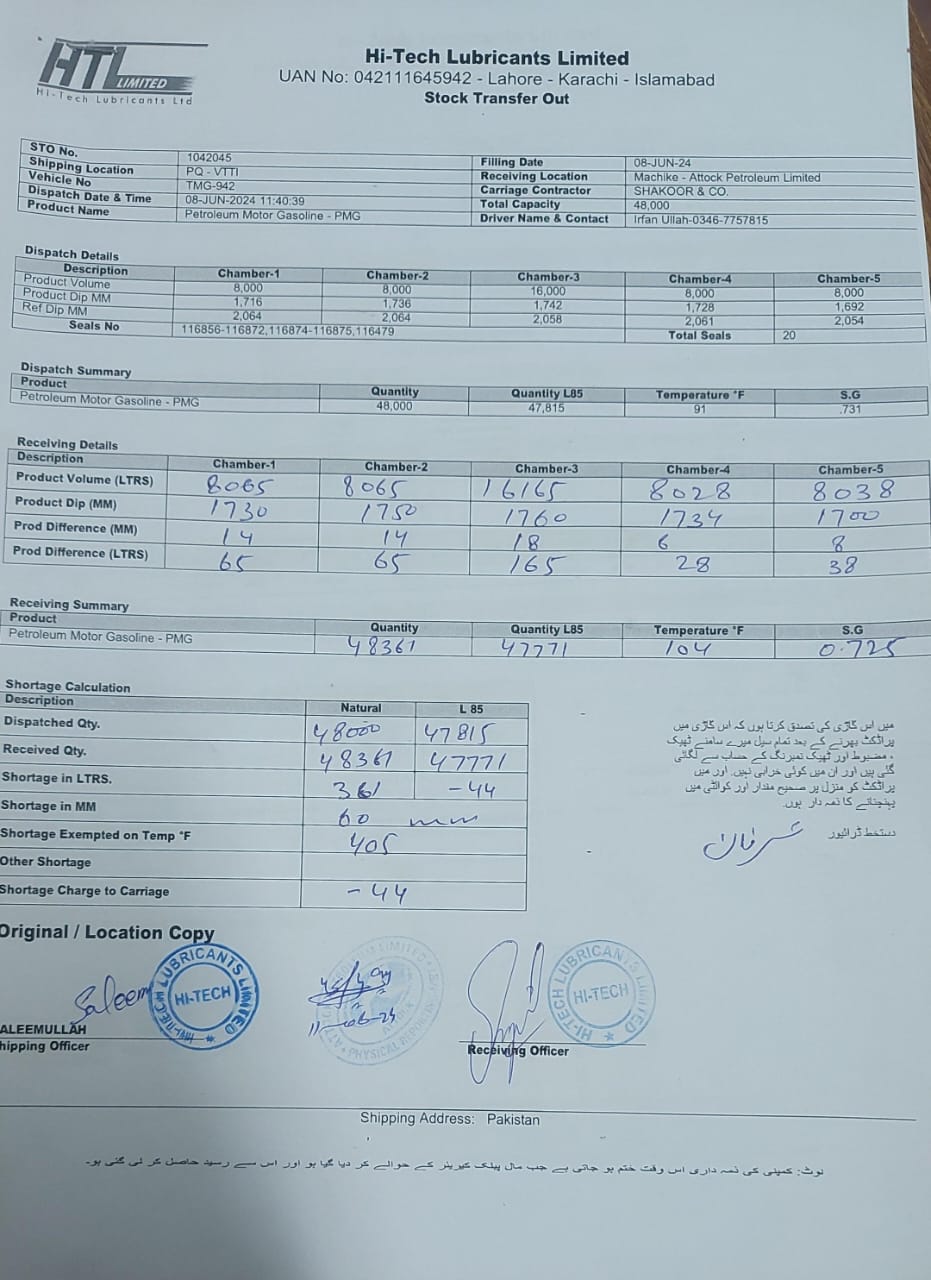 HTL LIMITED
Hi-Tech Lubricants Ltd
Hi-Tech Lubricants Limited
UAN No: 042111645942 - Lahore - Karachi - Islamabad
Stock Transfer Out
STO No. 1042045 Filling Date 08-JUN-24
Shipping Location PQ - VTTI Receiving Location Machike - Attock Petroleum Limited
Vehicle No TMG-942 Carriage Contractor SHAKOOR & CO.
Dispatch Date & Time 08-JUN-2024 11:40:39 Total Capacity 48,000
Product Name Petroleum Motor Gasoline - PMG Driver Name & Contact Irfan Ullah-0346-7757815
Dispatch Details
Description Chamber-1 Chamber-2 Chamber-3 Chamber-4 Chamber-5
Product Volume 8,000 8,000 16,000 8,000 8,000
Product Dip MM 1,716 1,736 1,742 1,728 1,692
Ref Dip MM 2,064 2,064 2,058 2,061 2,054
Seals No 116856-116872,116874-116875,116479 Total Seals 20
Dispatch Summary
Product Quantity Quantity L85 Temperature °F S.G
Petroleum Motor Gasoline - PMG 48,000 47,815 91 .731
Receiving Details
Description Chamber-1 Chamber-2 Chamber-3 Chamber-4 Chamber-5
Product Volume (LTRS) 8065 8065 16165 8028 8038
Product Dip (MM) 1730 1750 1760 1734 1700
Prod Difference (MM) 14 14 18 6 8
Prod Difference (LTRS) 65 65 165 28 38
Receiving Summary
Product Quantity Quantity L85 Temperature °F S.G
Petroleum Motor Gasoline - PMG 48361 47771 104 0.725
Shortage Calculation
Description Natural L 85
Dispatched Qty. 48000 47815
Received Qty. 48361 47771
Shortage in LTRS. 361 -44
Shortage in MM 60 mm
Shortage Exempted on Temp °F 405
Other Shortage
Shortage Charge to Carriage -44
میں اس گاڑی کی تصدق کرتا ہوں کہ اس گاڑی میں
پراڈکٹ بھرنے کے بعد تمام سیل میرے سامنے ٹھیک
، مضبوط اور ٹھیک نمبرنگ کے حساب سے لگائی
گئی ہیں اور ان میں کوئی خرابی نہیں. اور میں
پراڈکٹ کو منزل پر صحیح مقدار اور کوالٹی میں
پہنچانے کا ذمہ دار ہوں.
دستخط ڈرائیور عرفان
Original / Location Copy
Saleem
HI-TECH LUBRICANTS LIMITED
HI-TECH
11-06-24
HI-TECH LUBRICANTS LIMITED
HI-TECH
ALEEMULLAH
hipping Officer
Receiving Officer
Shipping Address: Pakistan
نوٹ: کمپنی کی ذمہ داری اس وقت ختم ہو جاتی ہے جب مال پبلک کیریئر کے حوالے کر دیا گیا ہو اور اس سے رسید حاصل کر لی گئی ہو۔